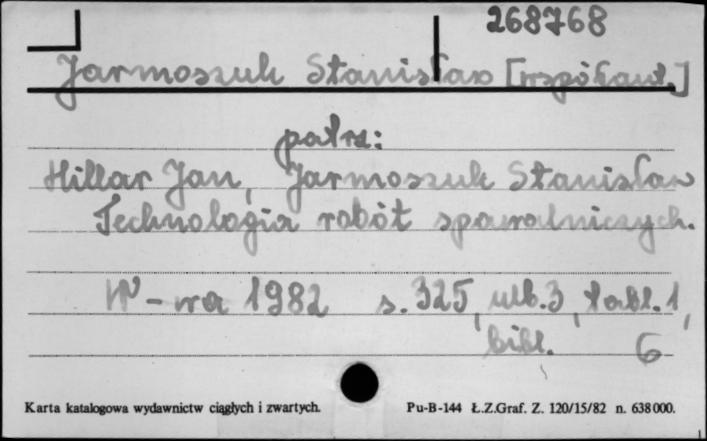 268768
Jarmoszuk Stanisław [współaut.]
patrz:
Hillar Jan, Jarmoszuk Stanisław
Technologia robót spawalniczych.
W-wa 1982 s. 325, nlb. 3, tabl. 1,
bibl. 6
Karta katalogowa wydawnictw ciągłych i zwartych. Pu-B-144 Ł.Z.Graf. Z. 120/15/82 n. 638000.